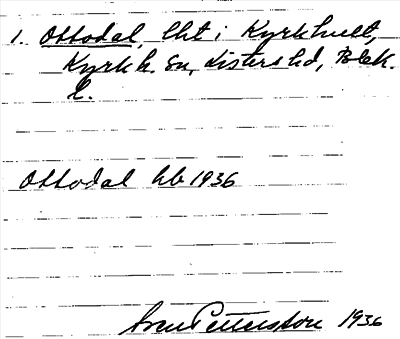 1. Ottodal, lht i Kyrkhult,
Kyrkh. sn, Listers hd, Blek.
l.
Ottodal hb 1936
Sven Pettersson 1936